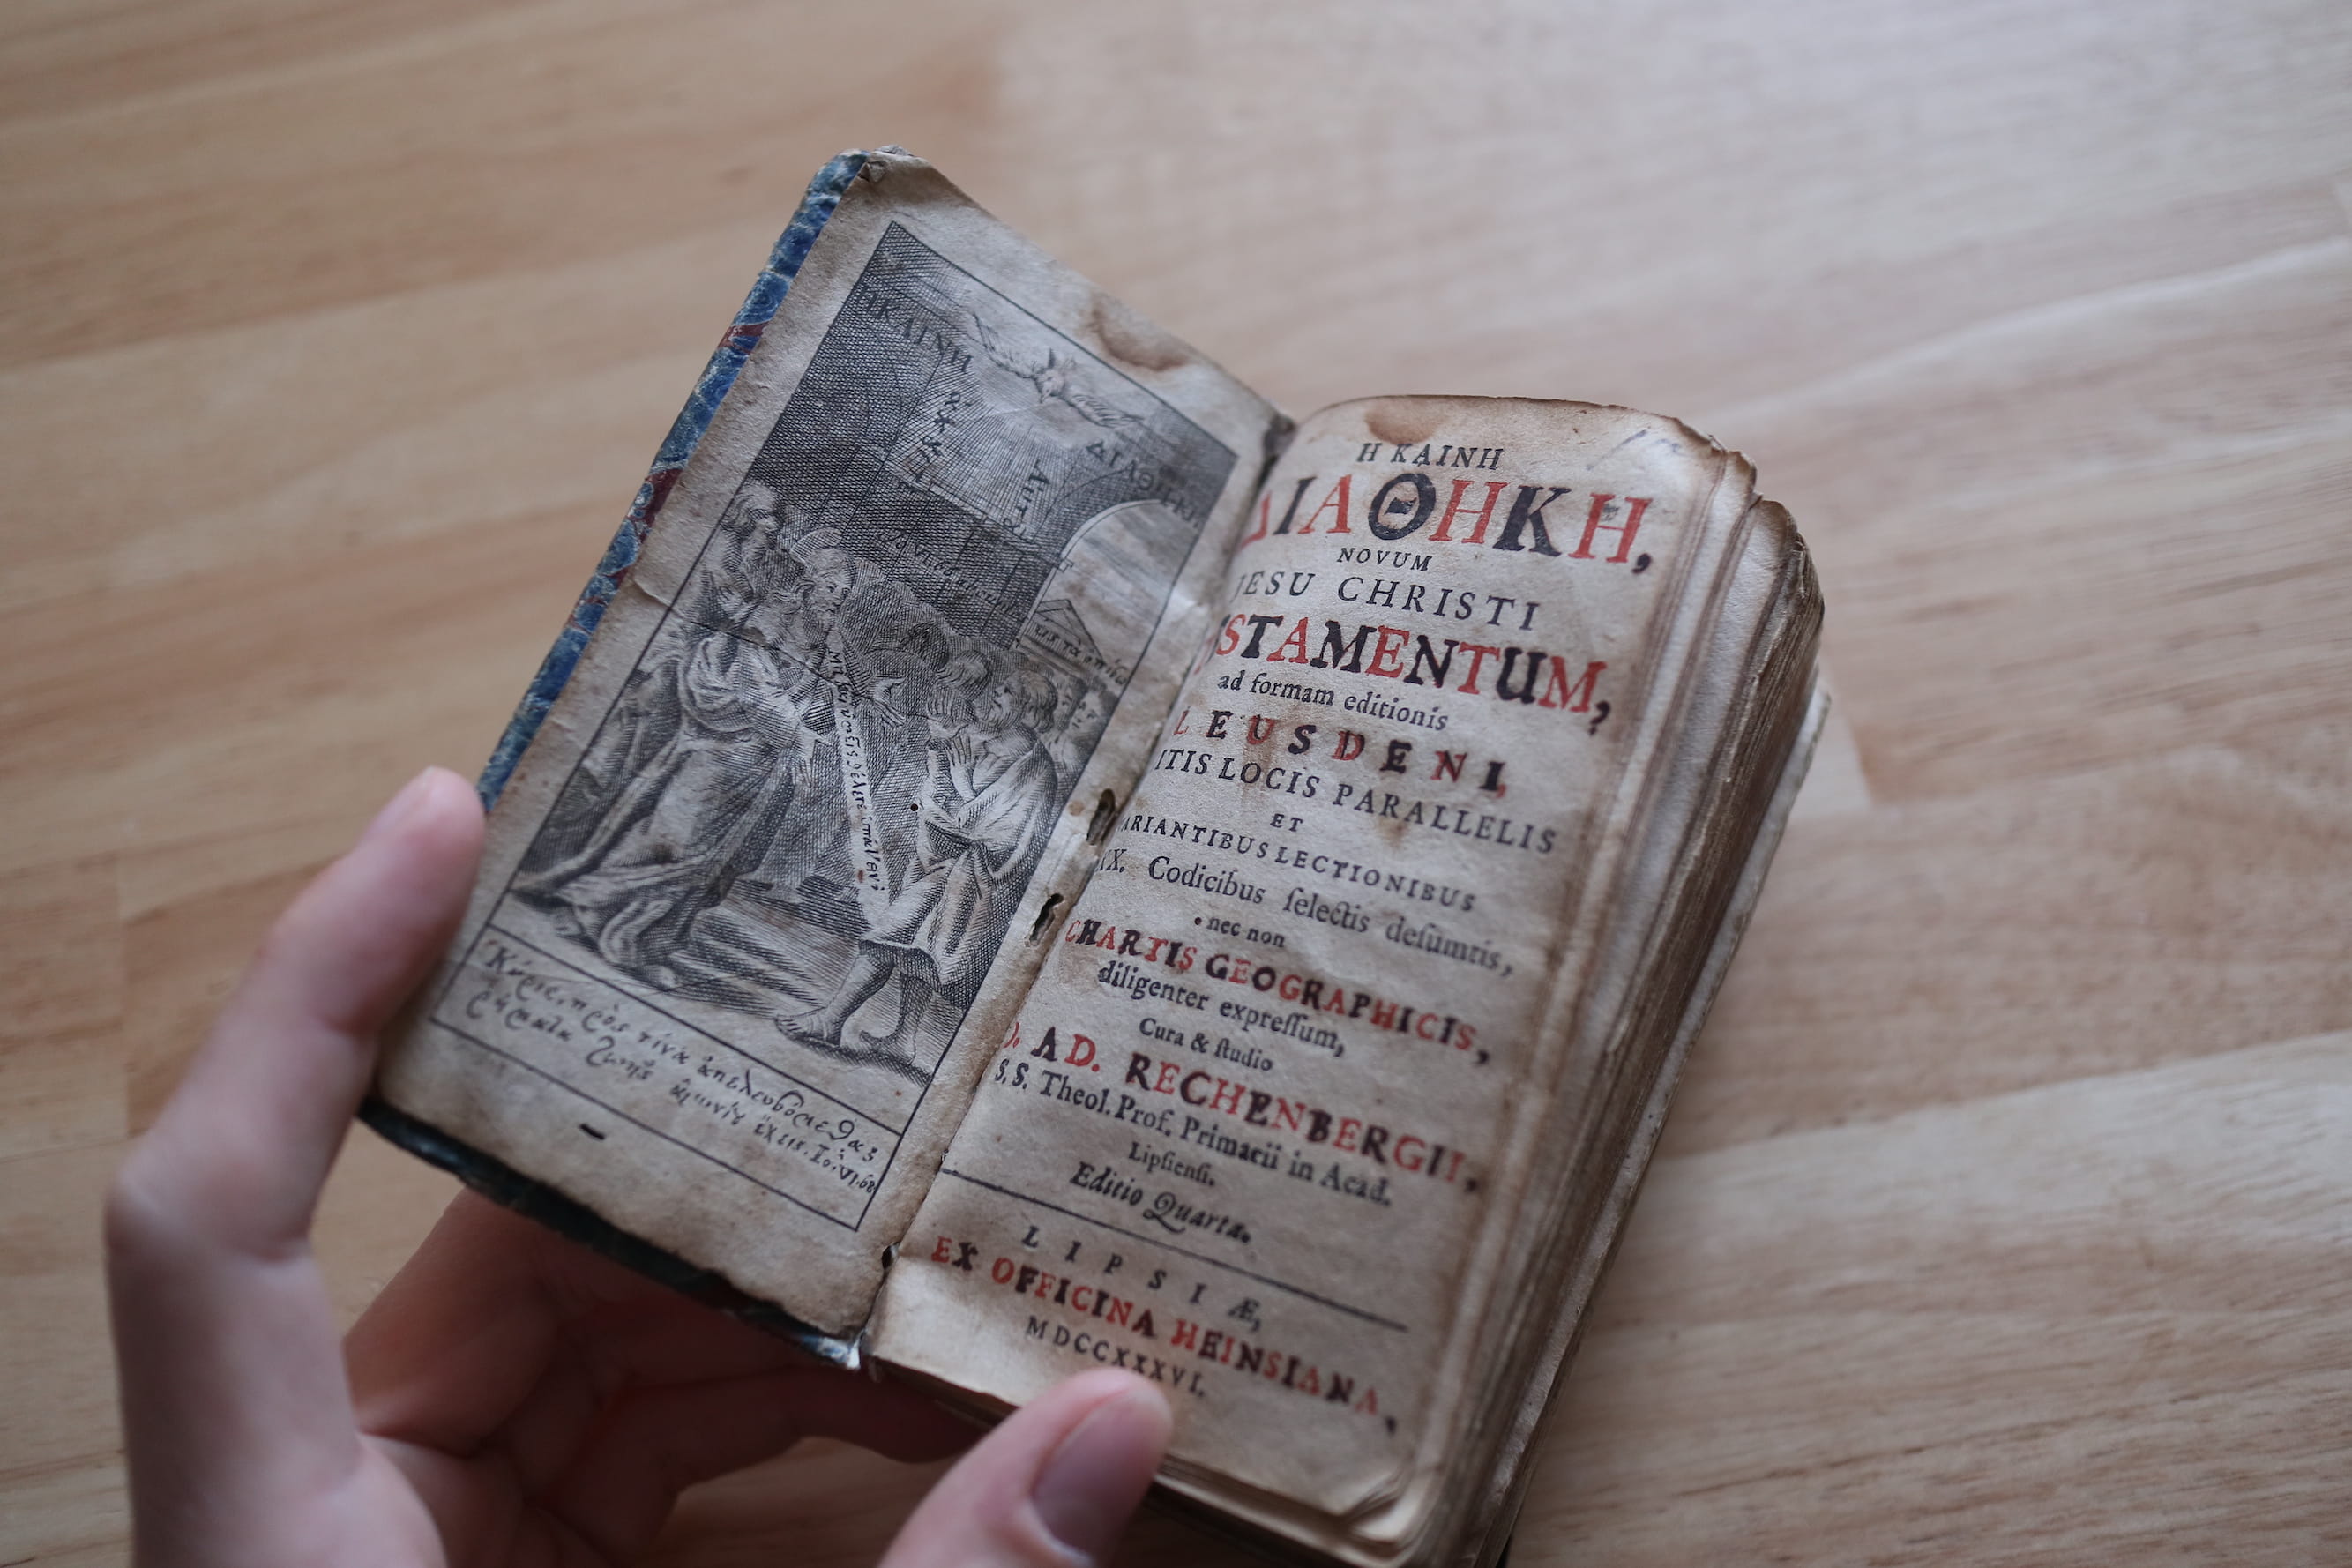 Η ΚΑΙΝΗ
ΔΙΑΘΗΚΗ
Κύριε, πρὸς τίνα ἀπελευσόμεθα;
ῥήματα ζωῆς αἰωνίου ἔχεις. Ιο. VI. 68
Η ΚΑΙΝΗ
ΔΙΑΘΗΚΗ,
NOVUM
JESU CHRISTI
STAMENTUM,
ad formam editionis
LEUSDENI,
ITIS LOCIS PARALLELIS
ET
ARIANTIBUS LECTIONIBUS
X. Codicibus ſelectis deſumtis,
nec non
CHARTIS GEOGRAPHICIS,
diligenter expreſſum,
Cura & ſtudio
D. AD. RECHENBERGII,
S.S. Theol. Prof. Primarii in Acad.
Lipſienſi.
Editio Quarta.
LIPSIÆ,
EX OFFICINA HEINSIANA,
MDCCXXXVI.